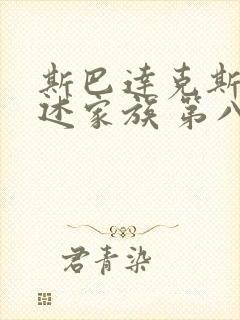 斯巴达克斯
述家族 第八
君青染